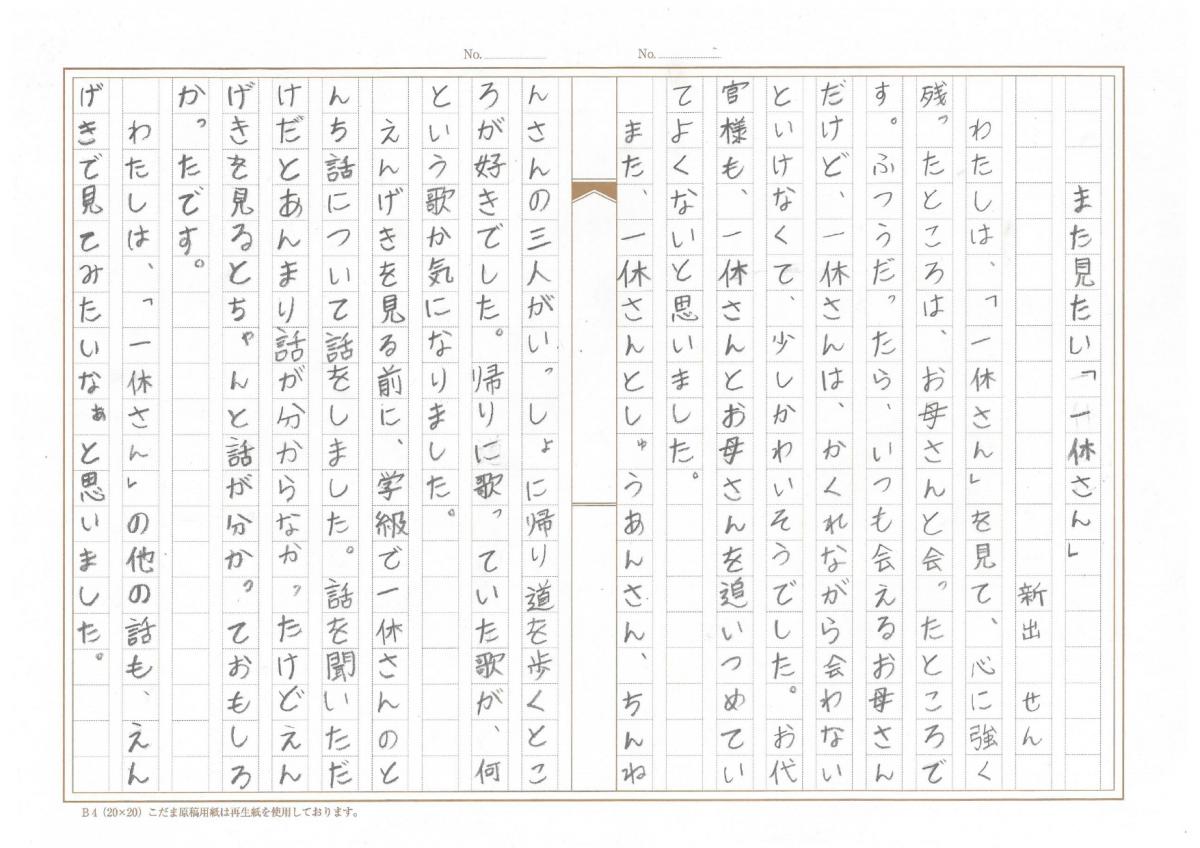 No.
No.
また見たい「一休さん」
新出 せん
わたしは、「一休さん」を見て、心に強く
残ったところは、お母さんと会ったところで
す。ふつうだったら、いつも会えるお母さん
だけど、一休さんは、かくれながら会わない
といけなくて、少しかわいそうでした。お代
官様も、一休さんとお母さんを追いつめてい
てよくないと思いました。
また、一休さんとしゅうあんさん、ちんね
んさんの三人がいっしょに帰り道を歩くとこ
ろが好きでした。帰りに歌っていた歌が、何
という歌か気になりました。
えんげきを見る前に、学級で一休さんのと
んち話について話をしました。話を聞いただ
けだとあんまり話が分からなかったけどえん
げきを見るとちゃんと話が分かっておもしろ
かったです。
わたしは、「一休さん」の他の話も、えん
げきで見てみたいなぁと思いました。
B4（20×20）こだま原稿用紙は再生紙を使用しております。